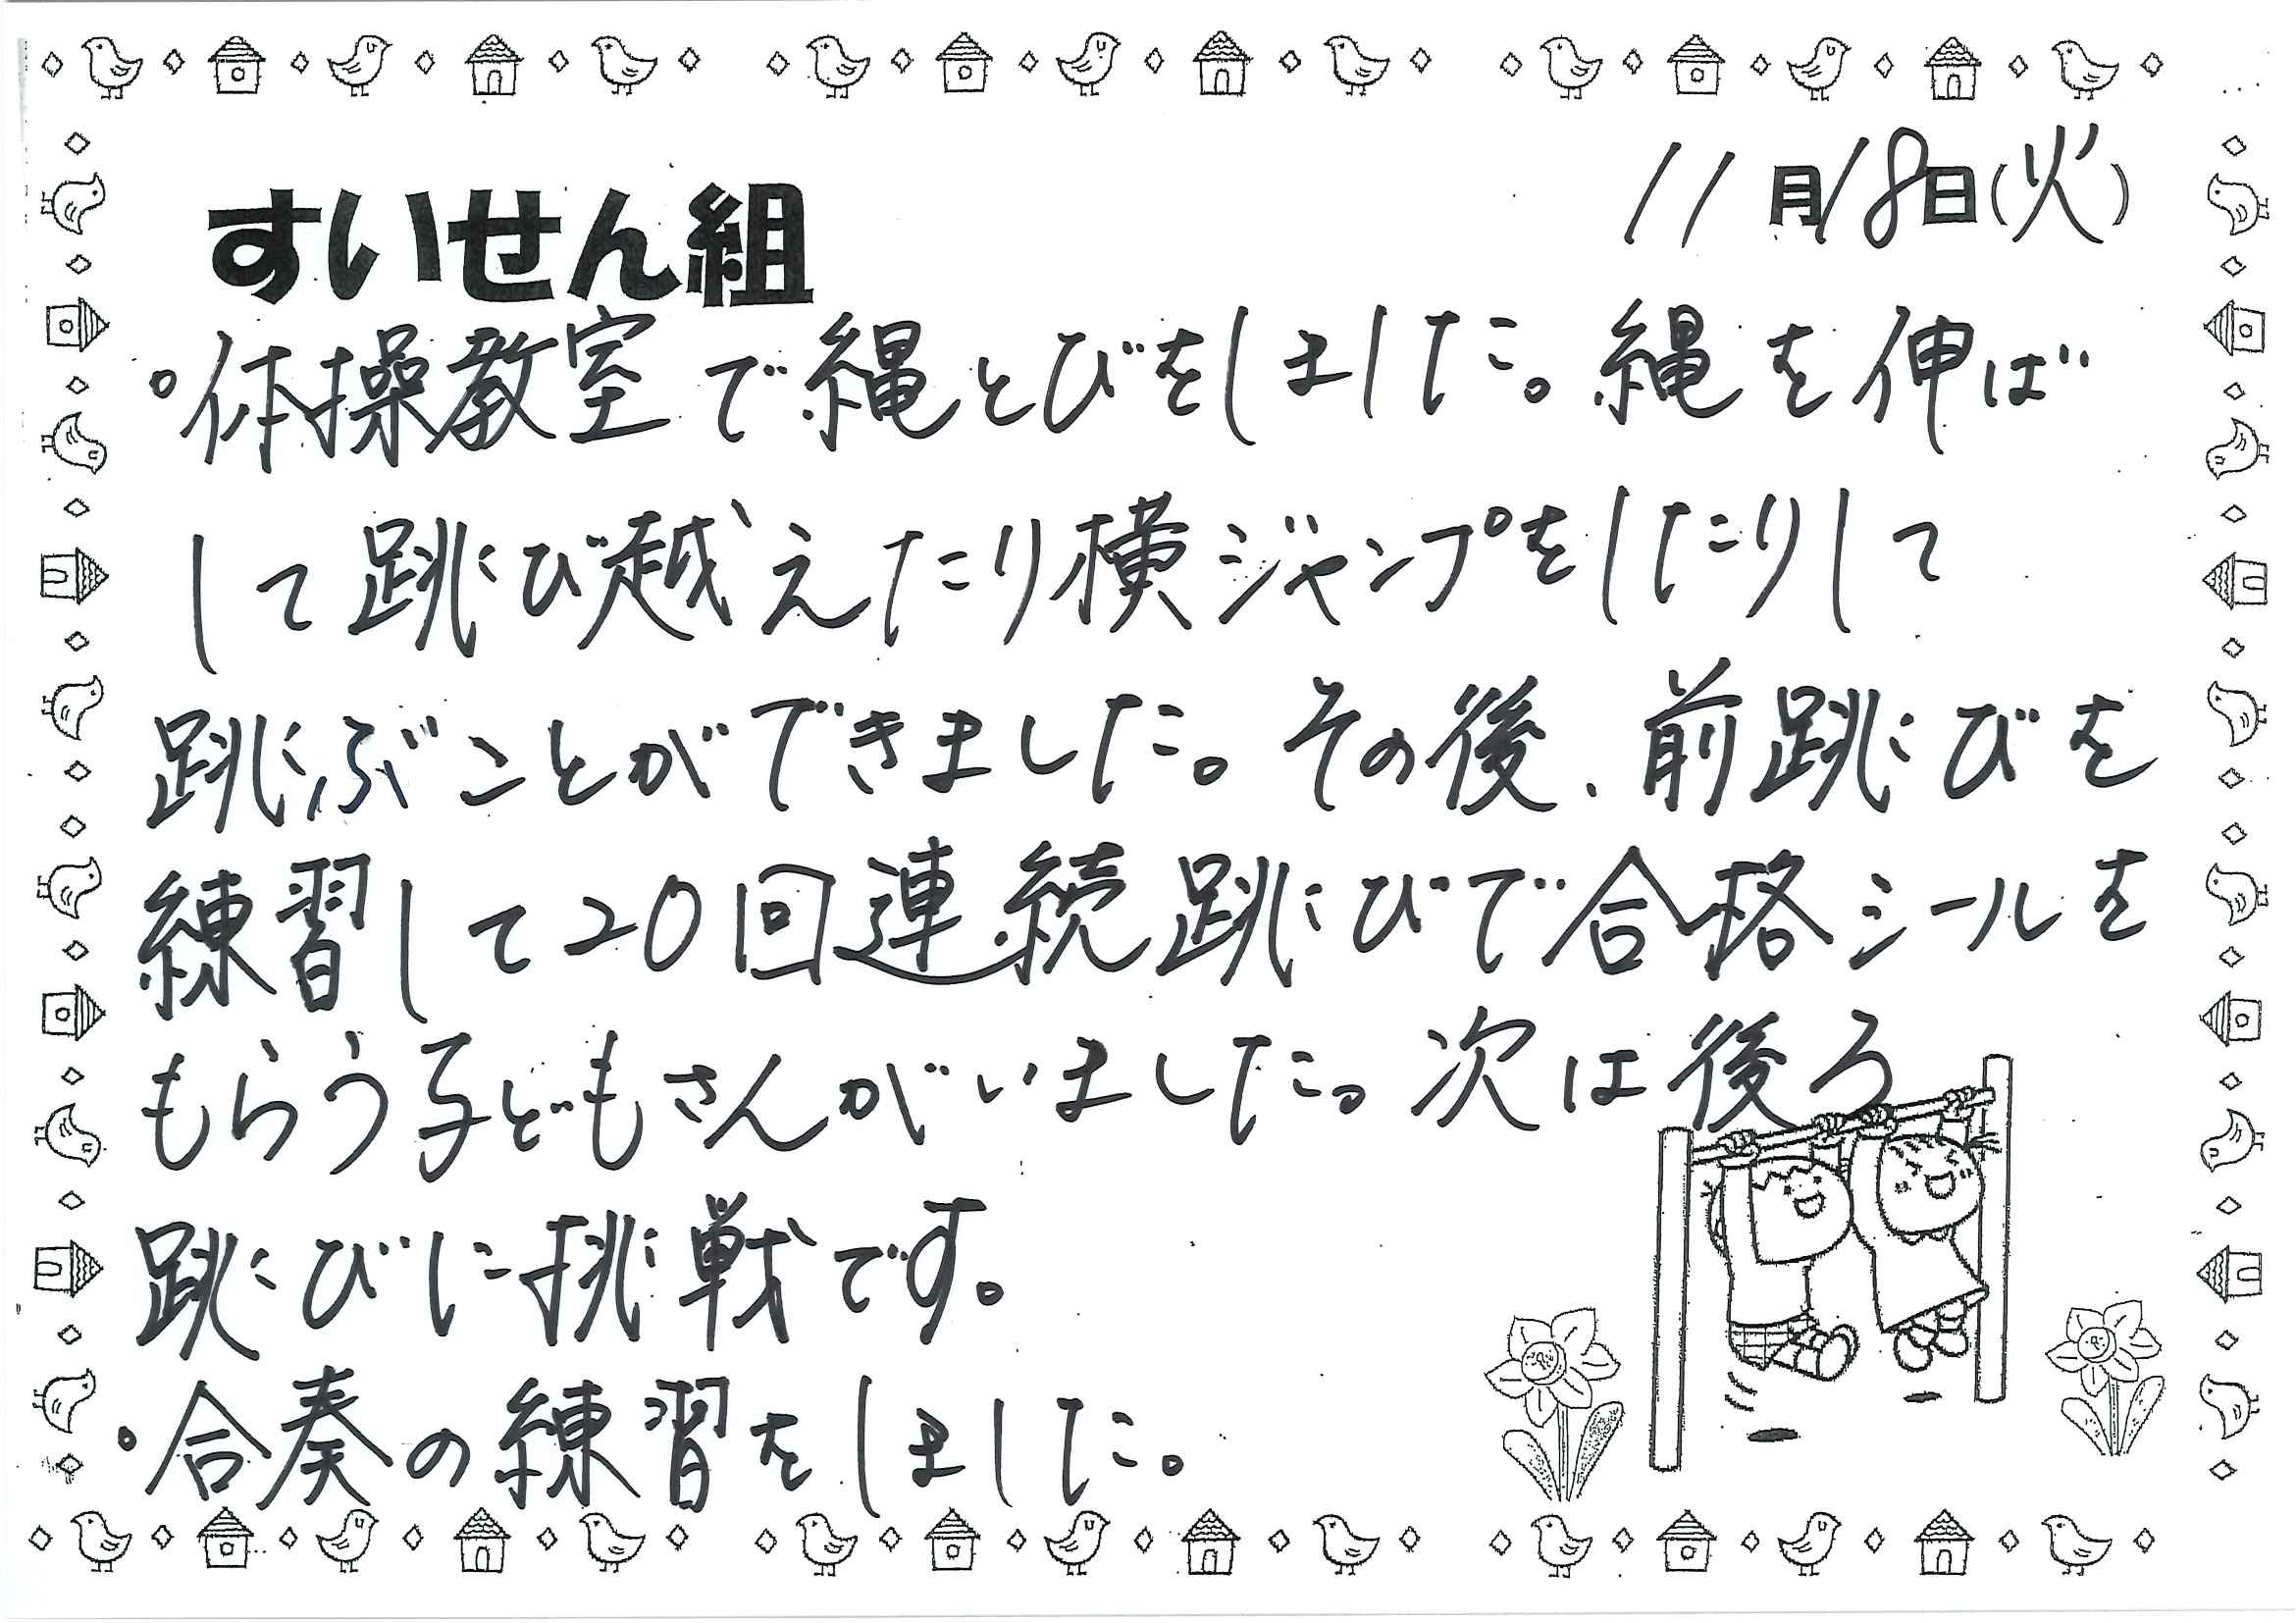 11月18日(火)
すいせん組
。体操教室で縄とびをしました。縄を伸ば
して跳び越えたり横ジャンプをしたりして
跳ぶことができました。その後、前跳びを
練習して20回連続跳びで合格シールを
もらう子どもさんがいました。次は後ろ
跳びに挑戦です。
。合奏の練習をしました。